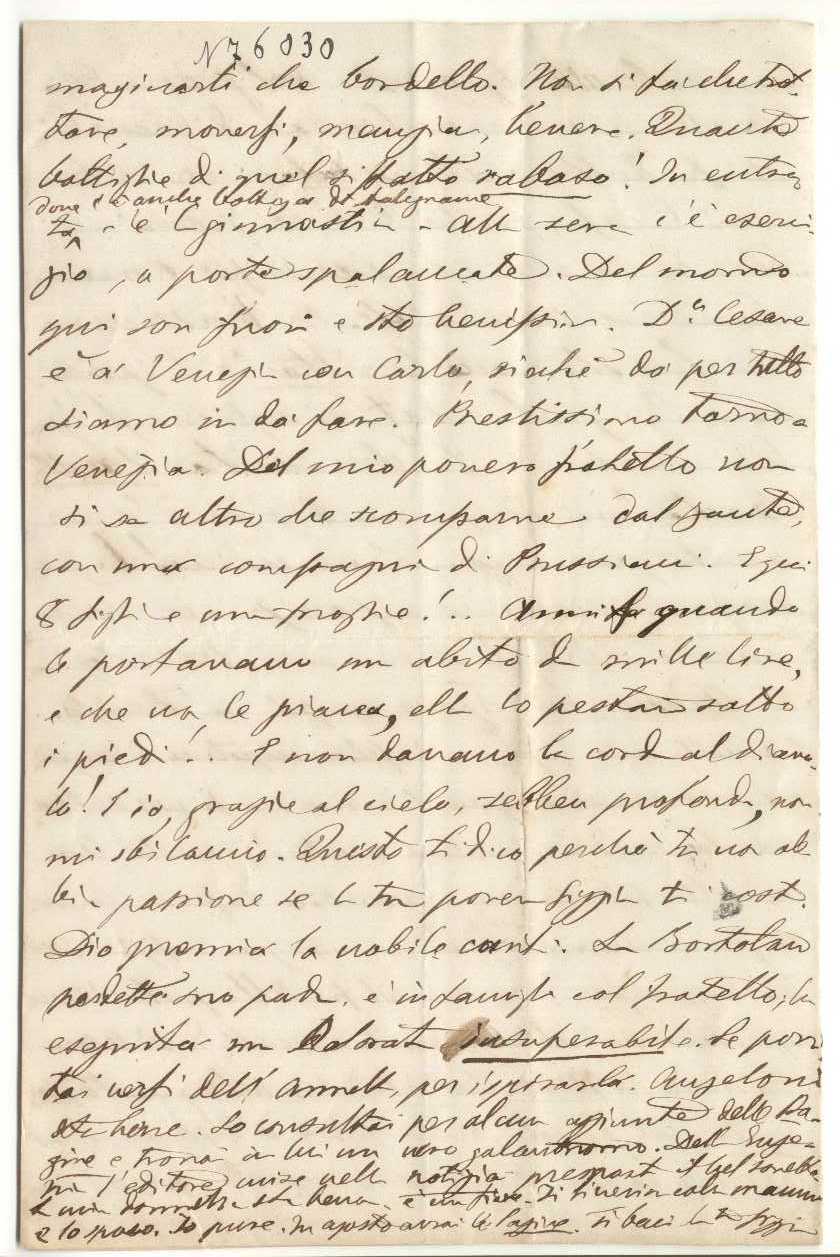 N 76030
maginarti che bordello. Non si fa che trot-
tare, moversi, mangiar, bevere. Quante
bottiglie di quel siffatto rabaso! In entra-
dove c'è anche bottega di falegname
ta c'è ginnastica. Alla sera c'è eserci-
zio, a porte spalancate. Del morso
qui son fuori e sto benissimo. Dn Cesare
è a Venezia con Carlo, sicchè da per tutto
siamo in da fare. Prestissimo torno a
Venezia. Del mio povero fratello non
si sa altro che scomparve dal
con una compagnia di Prussiani. E qui
8 figli e una moglie!.. quando
le portavano un abito da mille lire,
e che no, le piaceva, ella lo pestava sotto
i piedi!.. E non davano la corda al diavo-
lo! E io, grazie al cielo, sebben profonda, non
mi sbilancio. Questo ti dico perchè tu non ab-
bia passione se la tua povera ti cost.
Dio premia la nobile carità. La Bortolan
perdette suo padre, è in famiglia col fratello; ha
eseguita un insuperabile. Le por-
tai versi dell' Annetta, per ispirarla. Angeloni
sta bene. Lo consultai per alcune aggiunte delle Pa-
gine e trovai in lui un vero galantuomo. Dell' Euge-
nia l'editore mise nella notizia
la mia donnetta sta bene. è un fiore. Ti riverisco colla mamma
e lo sposo. Io pure. In agosto avrai le pagine. Ti baci la tua